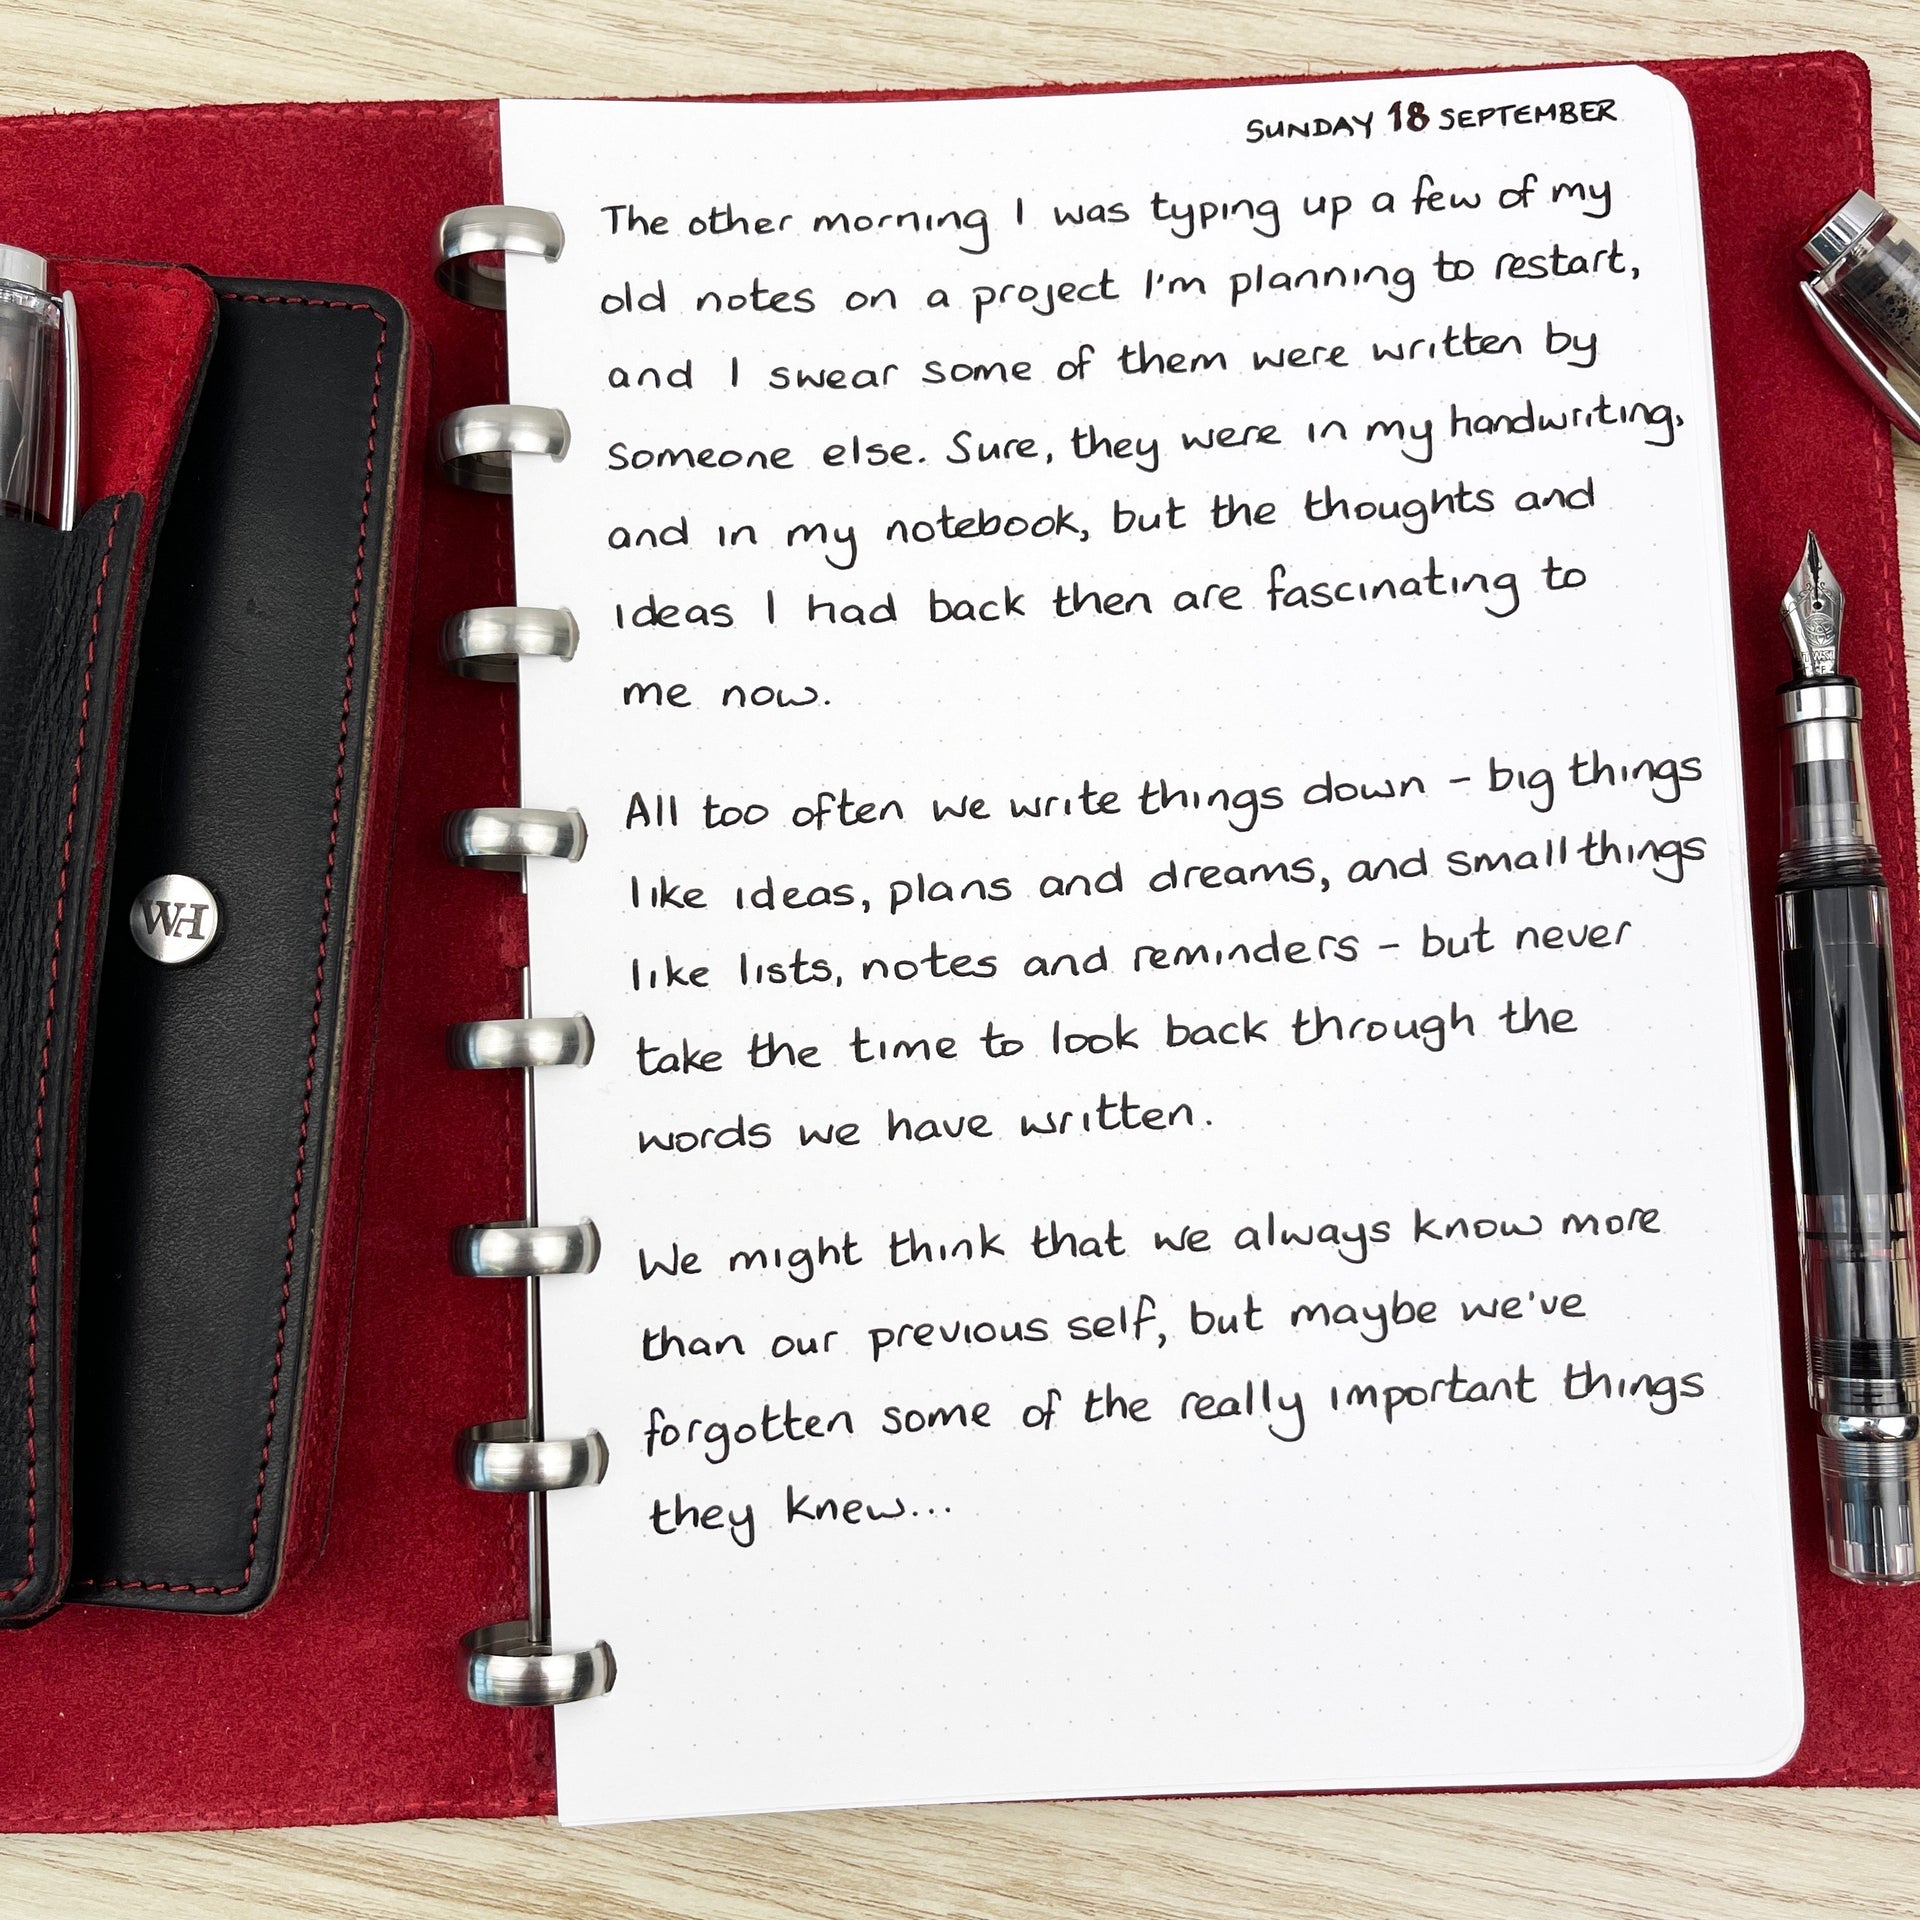 SUNDAY 18 SEPTEMBER
The other morning I was typing up a few of my
old notes on a project I'm planning to restart,
and I swear some of them were written by
someone else. Sure, they were in my handwriting,
and in my notebook, but the thoughts and
ideas I had back then are fascinating to
me now.
All too often we write things down - big things
like ideas, plans and dreams, and small things
like lists, notes and reminders - but never
take the time to look back through the
words we have written.
We might think that we always know more
than our previous self, but maybe we've
forgotten some of the really important things
they knew...
WH